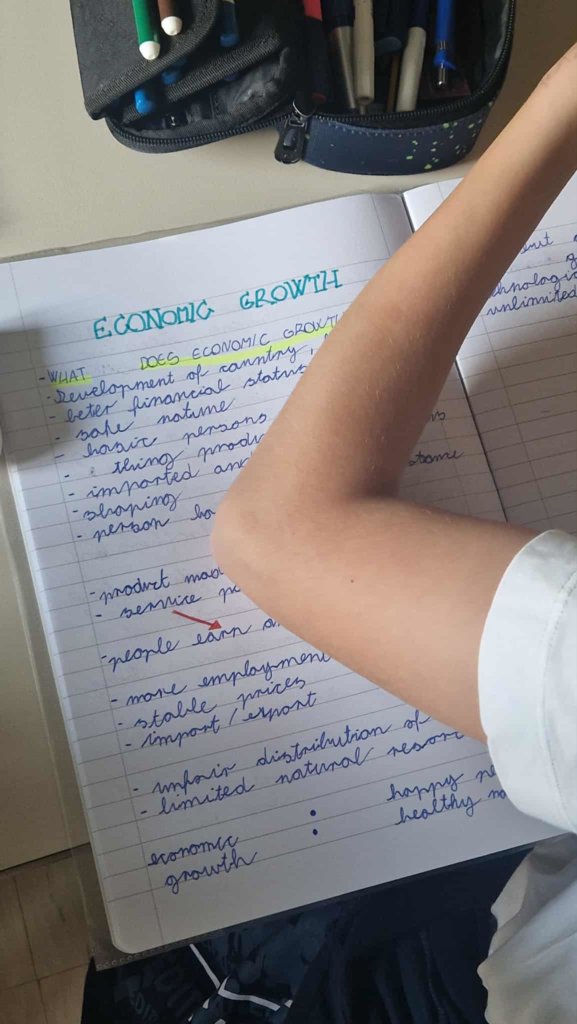 ECONOMIC GROWTH
- WHAT DOES ECONOMIC GROWT
- Development of canntry,
- beter financial status
- safe nature
- basic persons
- thing produ
- imported an
- shoping
- person ha
- product mad
- service pr
- people earn a
- more employment
- stable prices
- import / export
- unfair distribution of
- limited natural resor
economic : happy pe
growth healthy na
out
chnologi
unlimited